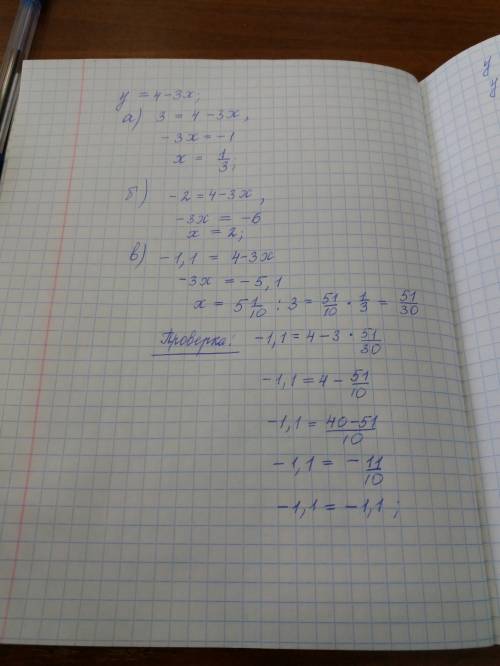 y = 4-3x;
а) 3 = 4-3x,
-3x = -1
x = 1/3;
б) -2 = 4-3x,
-3x = -6
x = 2;
в) -1,1 = 4-3x
-3x = -5,1
x = 5 1/10 : 3 = 51/10 · 1/3 = 51/30
Проверка: -1,1 = 4-3 · 51/30
-1,1 = 4 - 51/10
-1,1 = 40-51/10
-1,1 = - 11/10
-1,1 = -1,1;
y
y